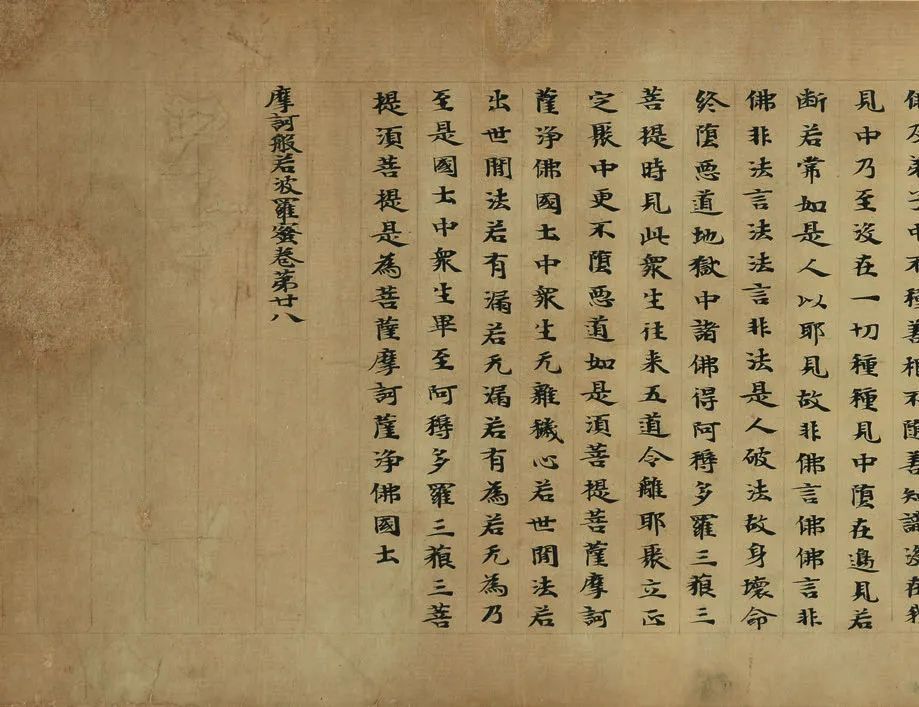 佛及弟子中不種善根不隨善知識沒在我
見中乃至沒在一切種種見中墮在邊見若
断若常如是人以耶見故非佛言佛佛言非
佛非法言法法言非法是人破法故身壞命
終墮惡道地獄中諸佛得阿耨多羅三藐三
菩提時見此衆生往来五道令離耶聚立正
定聚中更不墮惡道如是須菩提菩薩摩訶
薩淨佛國土中衆生无雜穢心若世間法若
出世間法若有漏若无漏若有為若无為乃
至是國土中衆生畢至阿耨多羅三藐三菩
提須菩提是為菩薩摩訶薩淨佛國土
摩訶般若波羅蜜卷第廿八